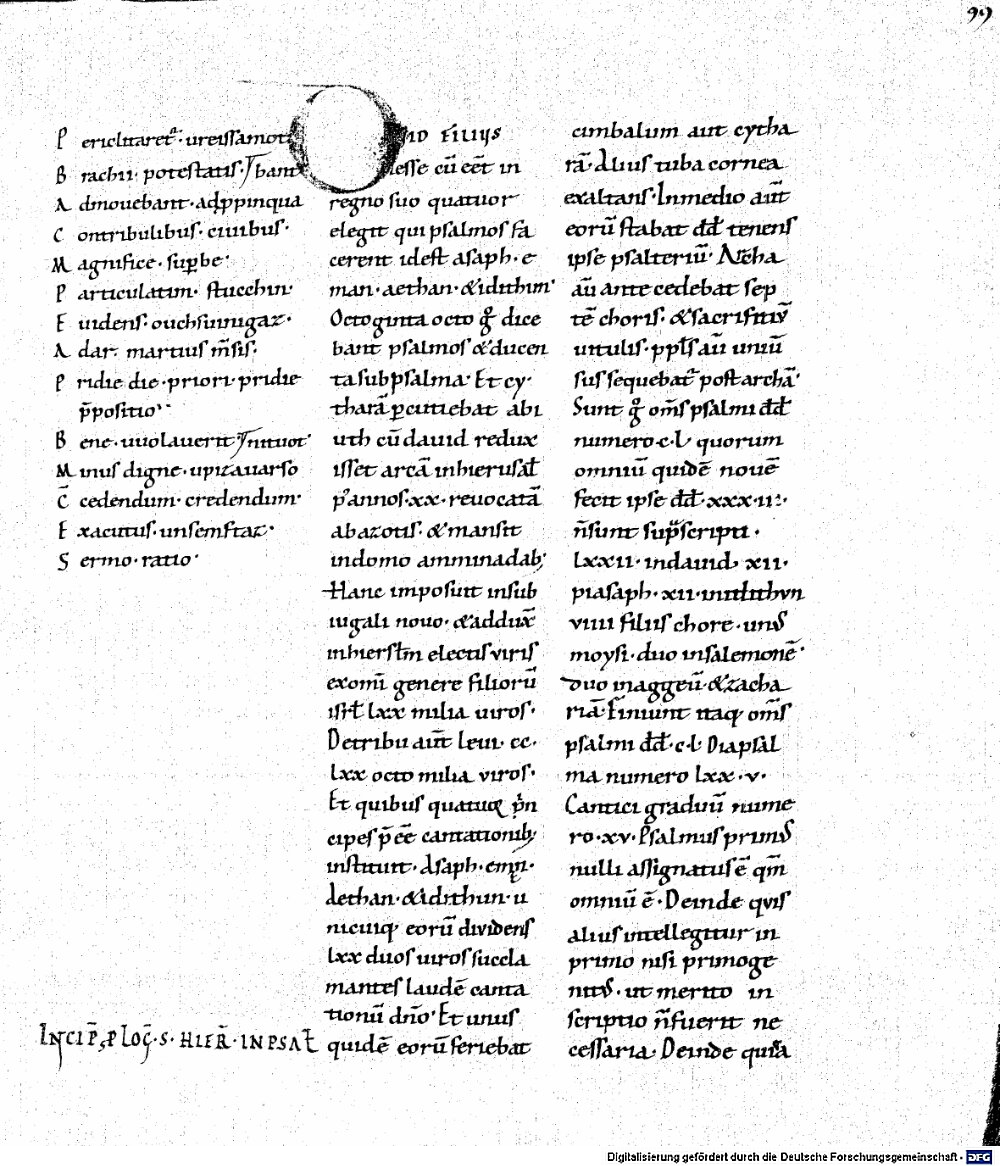 99
Periclitaret᷑· ureissamot·
Brachii· potestatis· bant
Admouebant· adp̄pinqua
Contribulibus· ciuibus·
Magnifice· sup̱be·
Particulatim· stucchin·
Euidens· ouchsuuigaz·
Adar· martius m̄sis·
Pridie die· priori· pridie
p̄positio··
Bene· uuolauerit nituot·
Minus digne· upizauarso
C̄cedendum· credendum·
Exacutus· unsemftaz·
Sermo· ratio·
INCIP̄ P̱LOḠ· S· HIER̄· INPSAL̄
DAUID FILIUS
iesse cū eēt in
regno suo quatuor
elegit qui psalmos fa
cerent idest asaph· e
man· aethan· &idithim·
Octoginta octo g̊ dice
bant psalmos &ducen
ta subpsalma· Et cy·
tharā p̱cutiebat abi
uth cū dauid redux
isset arcā inhierusal̄
p᷒ annos· xx· reuocatā
abazotis· &mansit
indomo amminadab;
Hanc imposuit insub
iugali nouo· &addux̄
inhierlm̄ electis viris
exom̄i genere filiorū
isrl̄ lxx milia uiros·
Detribu aūt leui· cc·
lxx octo milia viros·
Et quibus quatuor p̄n
cipes p̄eē cantationib;
instituit· Asaph· eman·
&ethan· &idithun· u
nicuiq; eorū dividens
lxx duos uiros succla
mantes laudē canta
tionū dn̄o· Et unus
quidē eorū feriebat
cimbalum aut cytha
rā· Alius tuba cornea
exaltans· Inmedio aūt
eorū stabat dd̄ tenens
ipse psalteriū· Archa
aū antecedebat sep
tē choris· &sacrifitiū
uitulis· ppl̄s aū uniū
sus sequebat᷑ post archā·
Sunt g̊ om̄s psalmi dd̄
numero· c· l· quorum
omniū quidē nouē
fecit ipse dd̄· xxx· ii·
n̄ sunt sup̱scripti·
lxxii· indauid· xii·
piasaph· xii· inidithvn
viiii filiis chore· un᷒
moysi· duo insalemonē·
duo inaggeū· &zacha
riā· Finiunt itaq; om̄s
psalmi dd̄· c· l· Diapsal
ma numero lxx· v·
Cantici graduū nume
ro· xv· Psalmus prim᷒
nulli assignatus ē qm̄
omniū ē· Deinde quis
alius intellegitur in
primo nisi primoge
nit᷒· ut merito in
scriptio n̄ fuerit ne
cessaria· Deinde quia
Digitalisierung gefördert durch die Deutsche Forschungsgemeinschaft - DFG